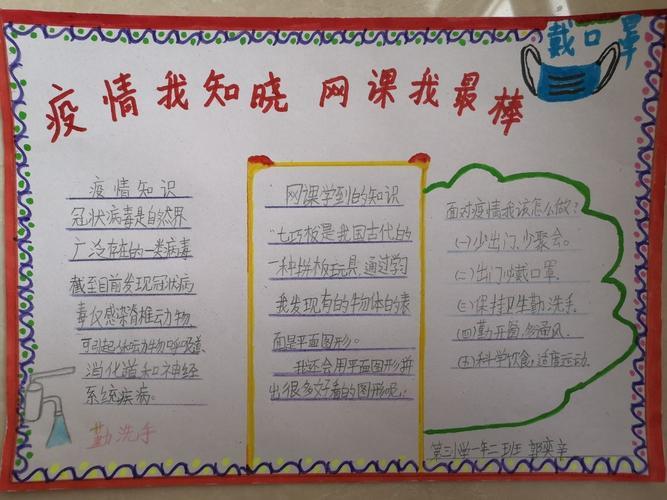 戴口罩
疫情我知晓 网课我最棒
疫情知识
冠状病毒是自然界
广泛存在的一类病毒
截至目前发现冠状病
毒仅感染脊椎动物,
可引起人和动物呼吸道
消化道和神经
系统疾病。
勤洗手
网课学到的知识
七巧板是我国古代的
一种拼板玩具,通过学习
我发现有的物体的表
面是平面图形。
我还会用平面图形拼
出很多好看的图形呢!
面对疫情我该怎么做?
(一)少出门,少聚会。
(二)出门必戴口罩.
(三)保持卫生勤洗手.
(四)勤开窗,多通风.
(五)科学饮食,适度运动.
第三小学一年二班 郭奕辛